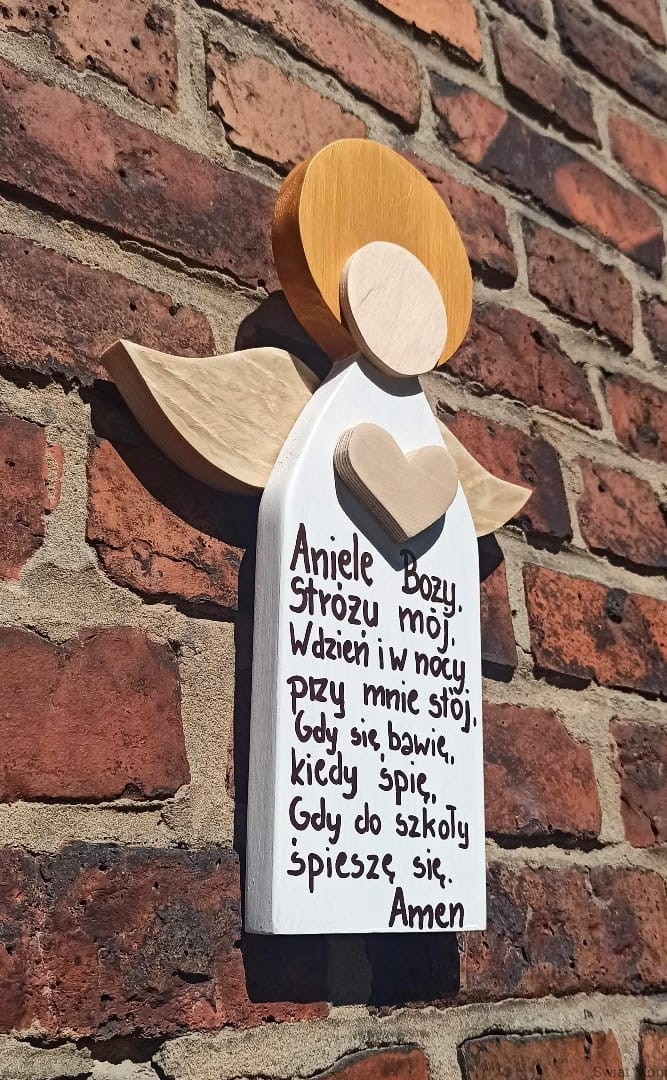 Aniele Boży.
Stróżu mój,
W dzień i w nocy
przy mnie stój,
Gdy się bawię,
kiedy śpię,
Gdy do szkoły
śpieszę się.
Amen